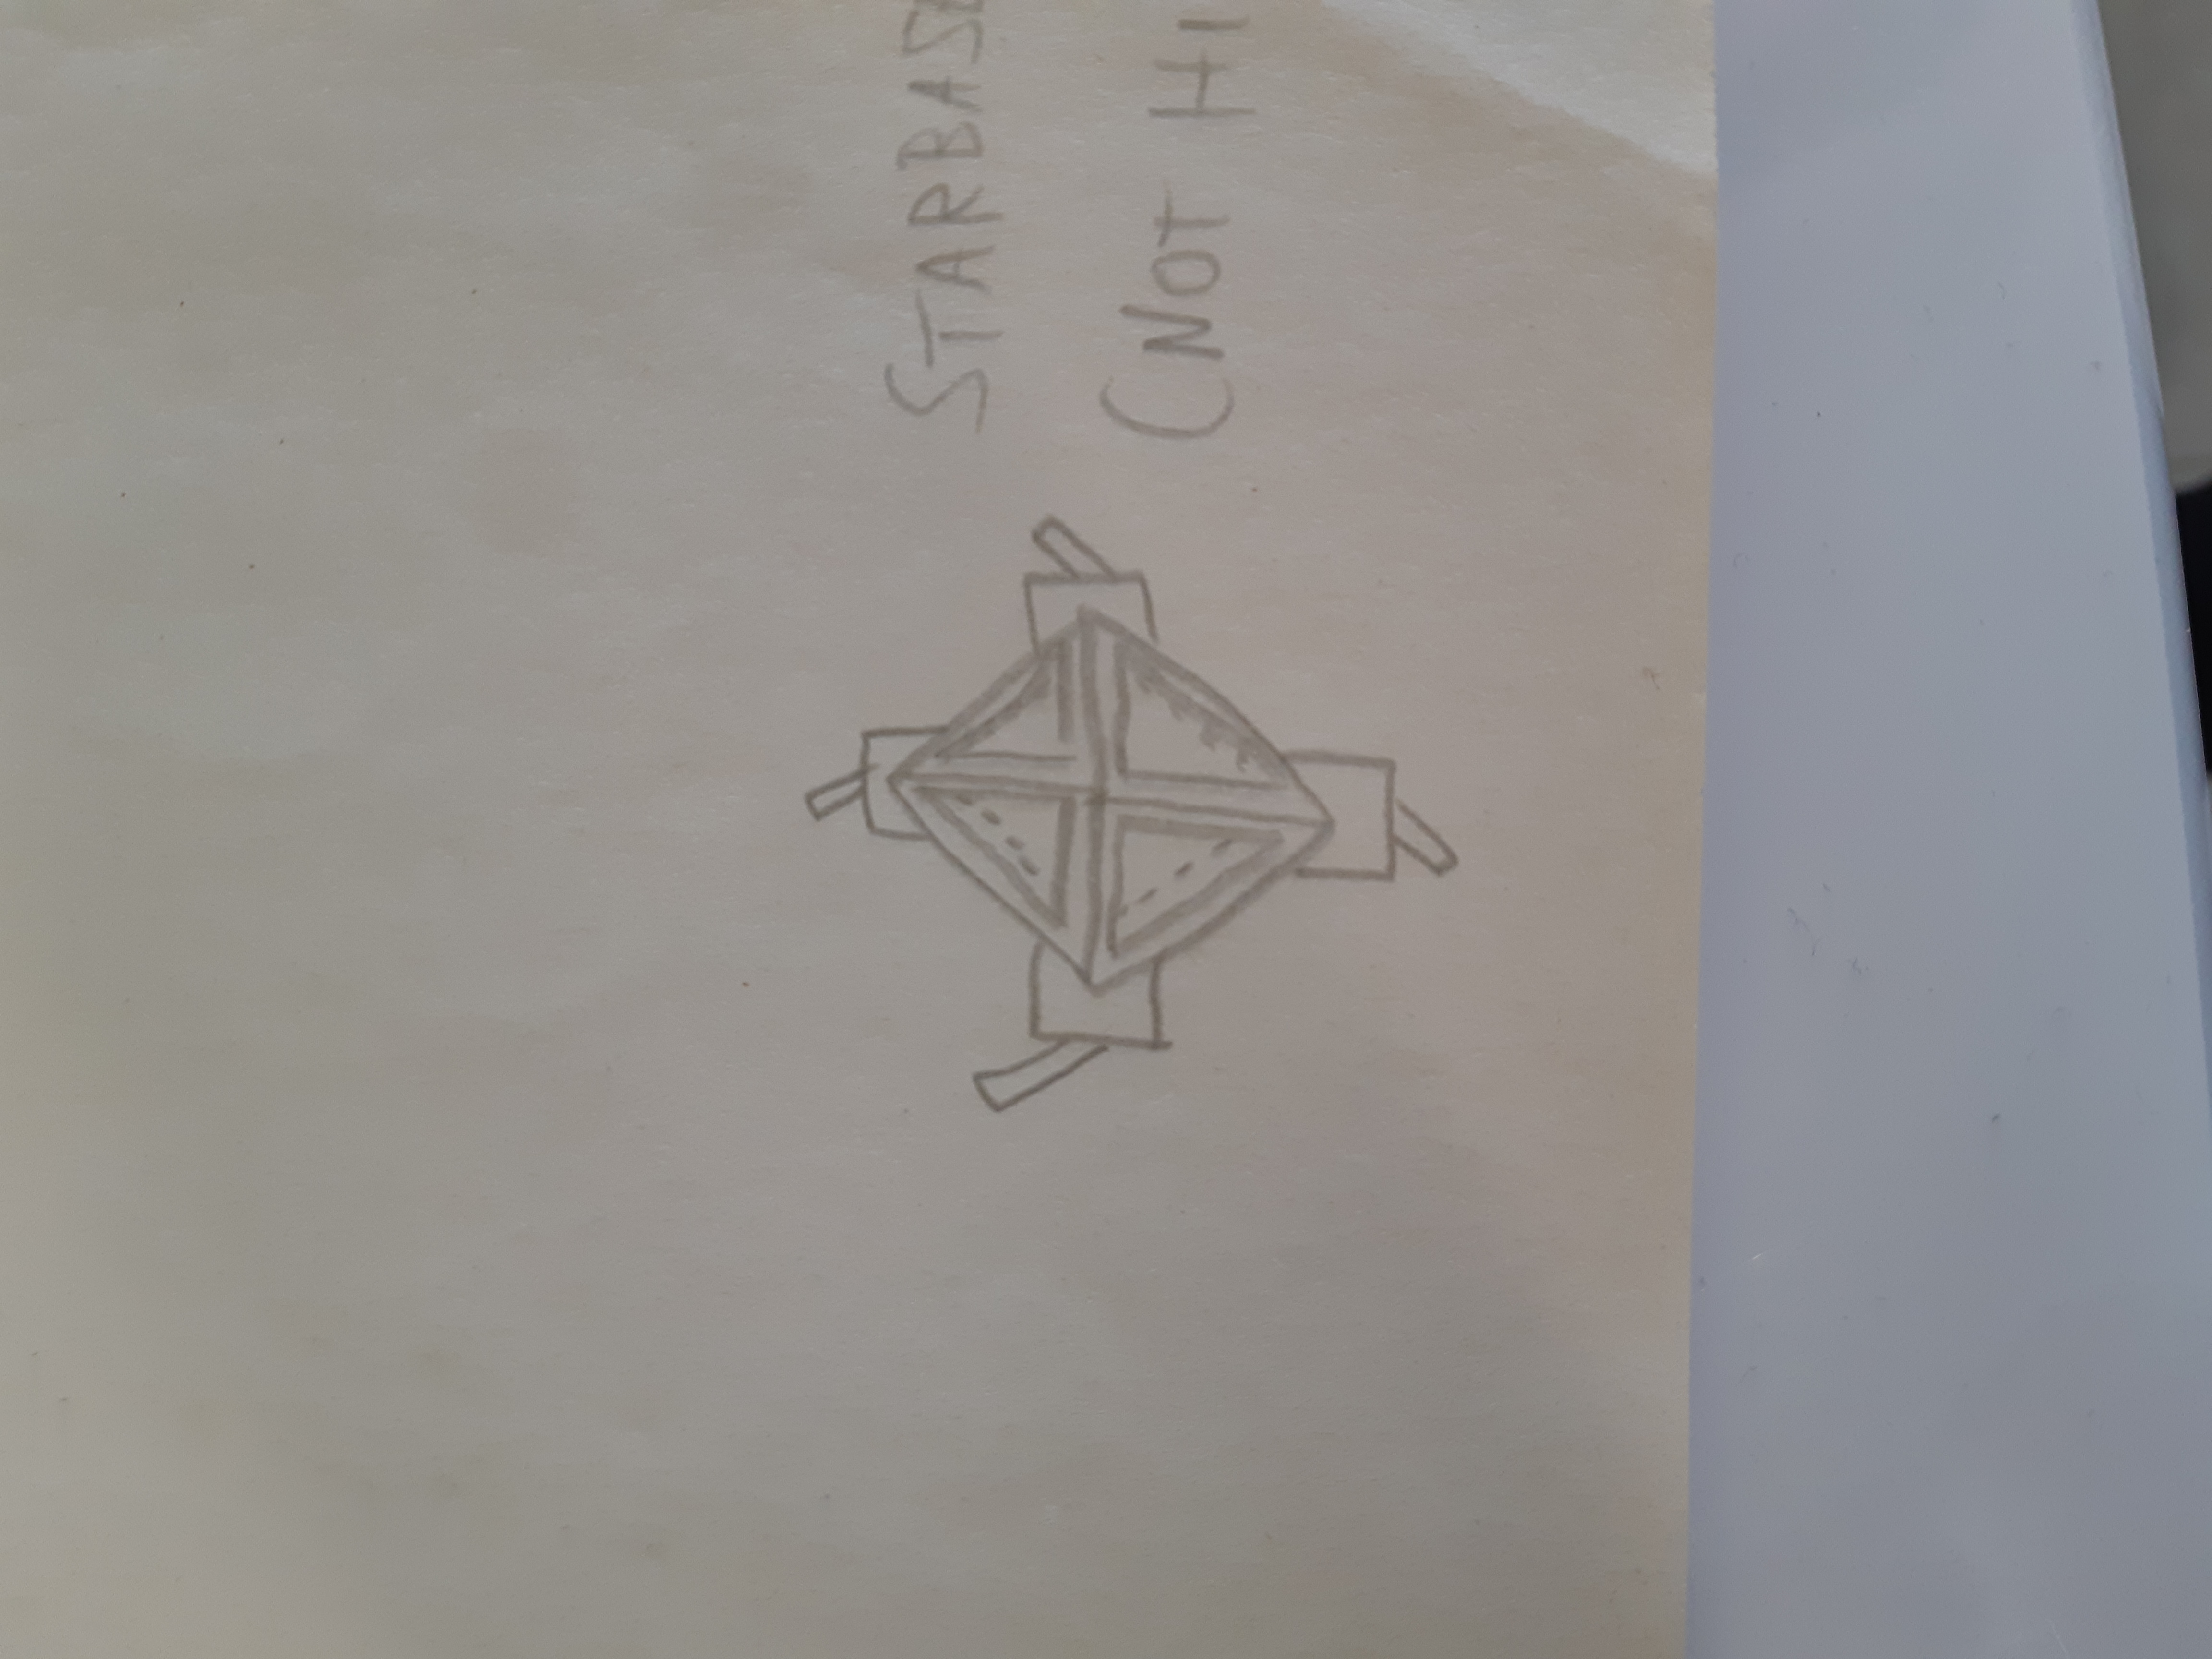 STARBASE
(NOT HI